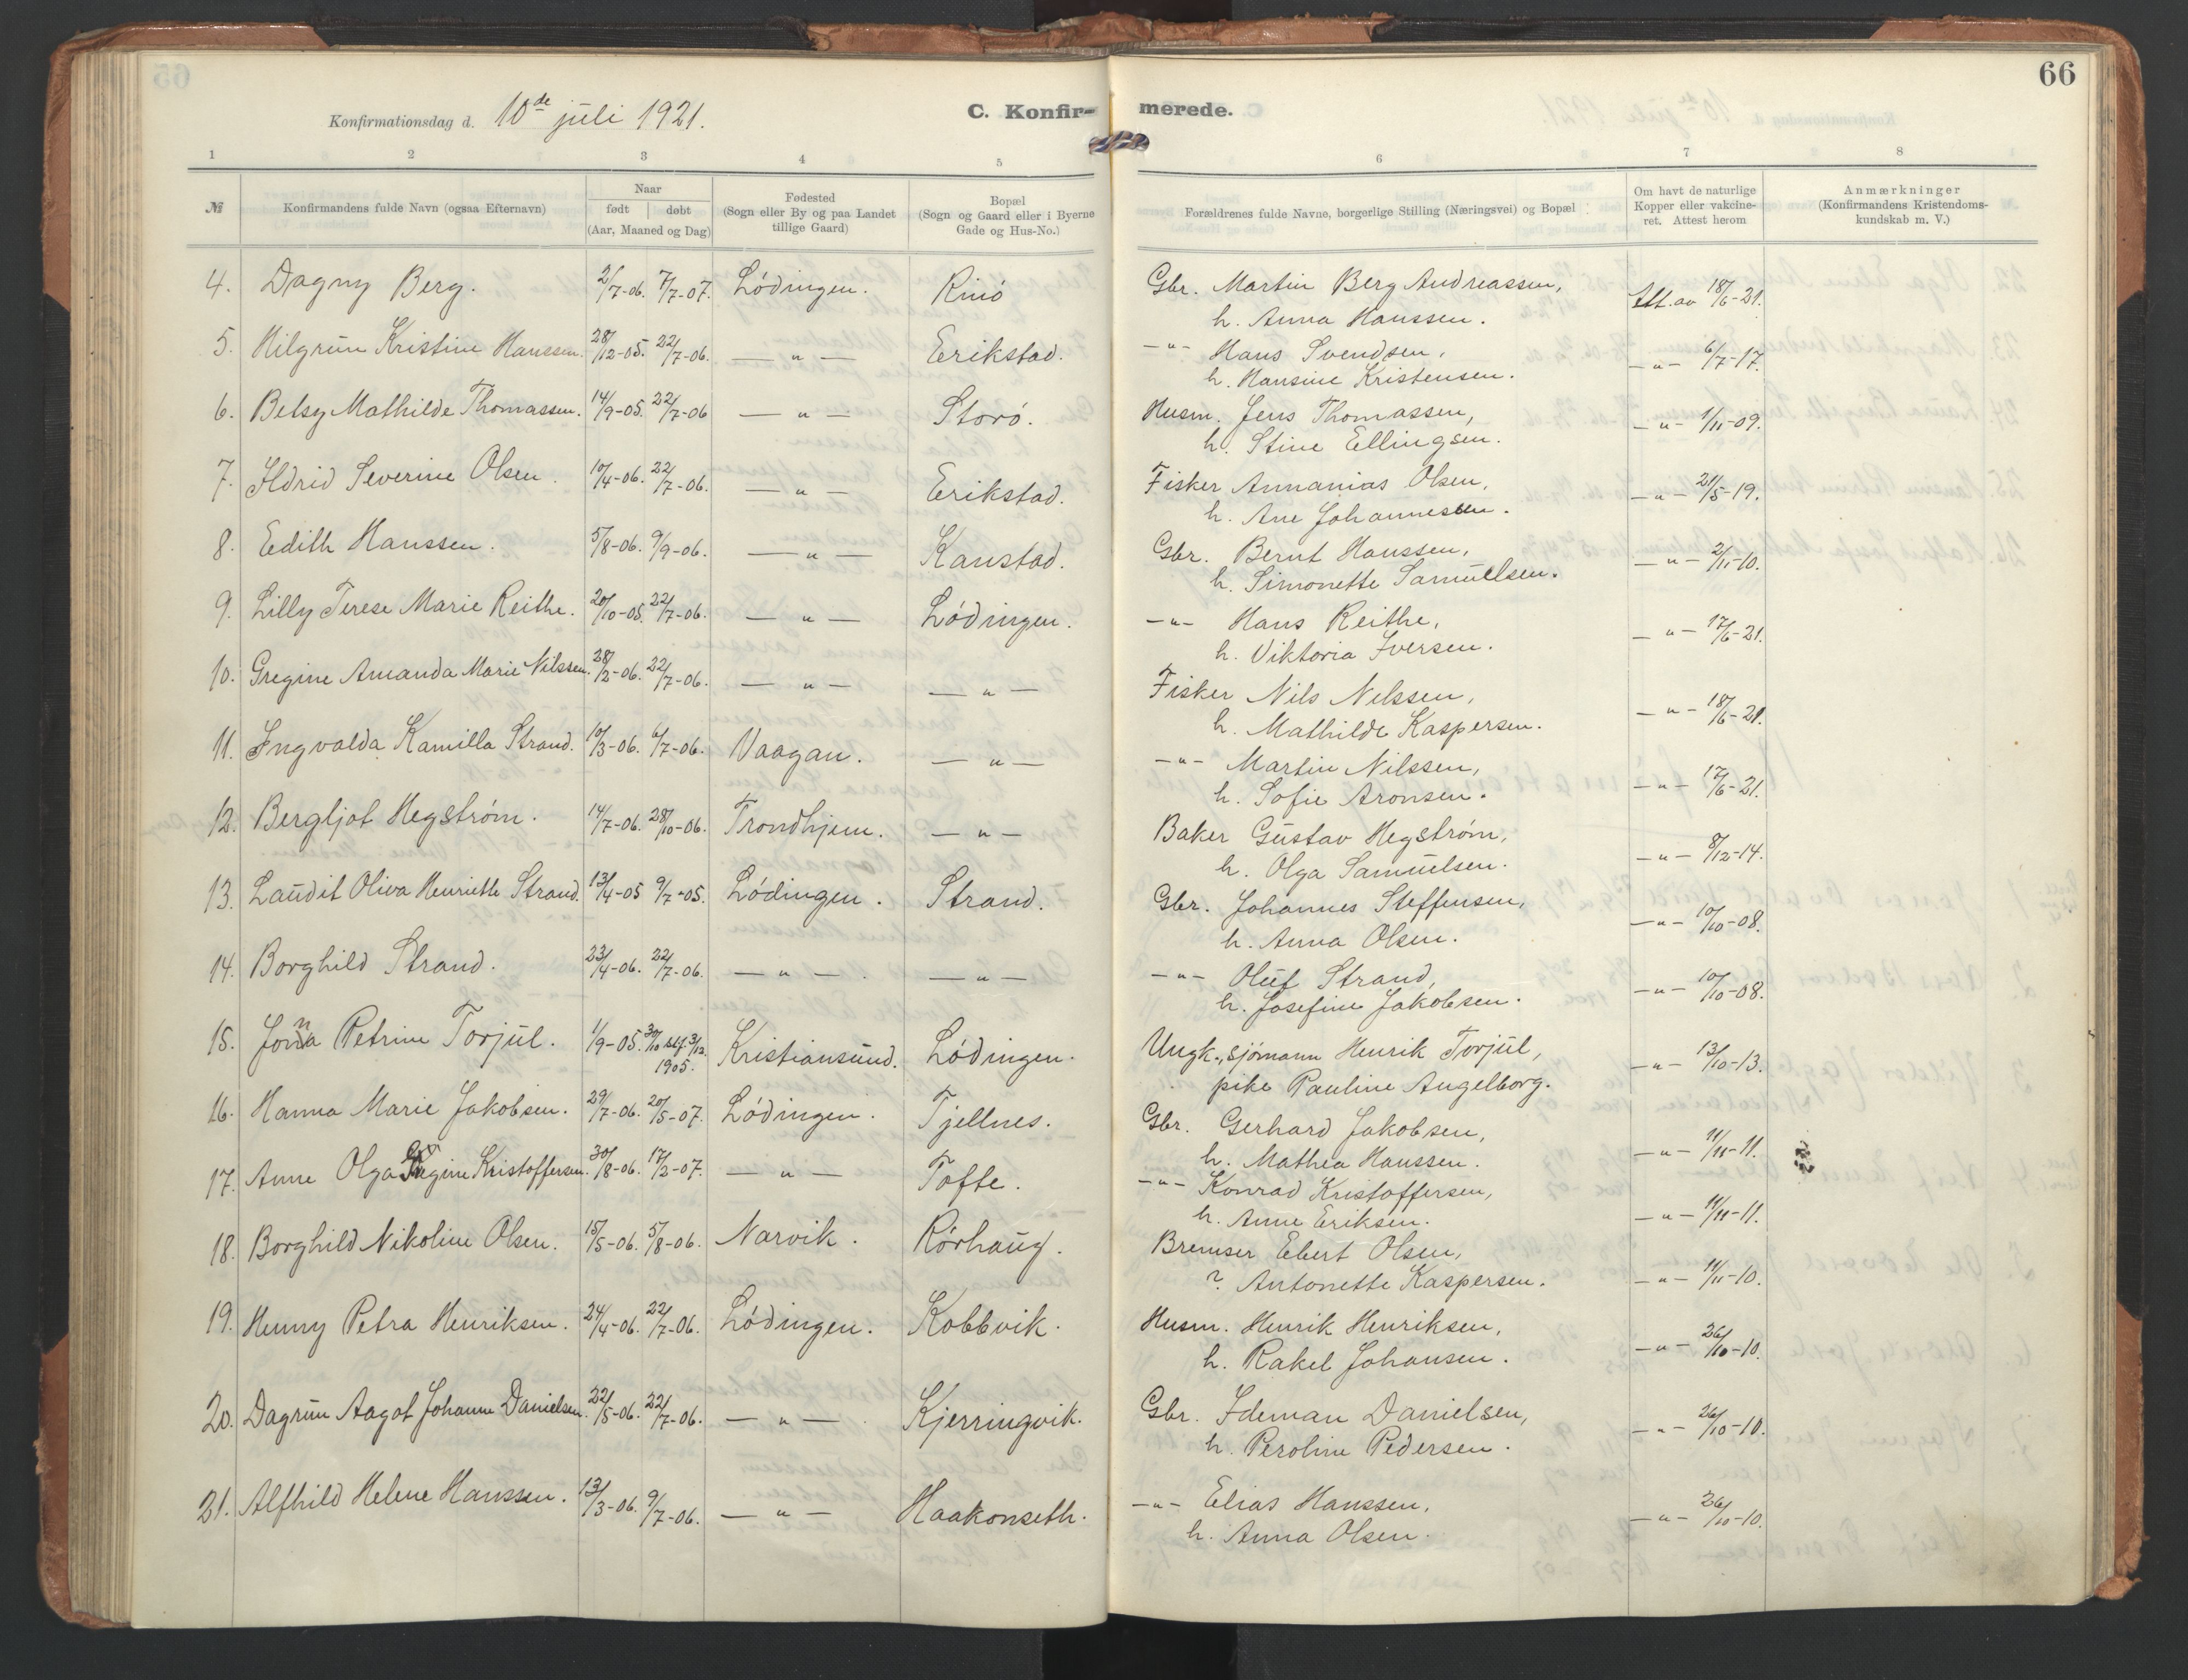 66
Konfirmationsdag d. 10de juli 1921. C. Konfir- merede.
1 2 3 4 5 6 7 8
№ Konfirmandens fulde Navn (ogsaa Efternavn) Naar født døbt (Aar, Maaned og Dag) Fødested (Sogn eller By og paa Landet tillige Gaard) Bopæl (Sogn og Gaard eller i Byerne Gade og Hus-No.) Forældrenes fulde Navne, borgerlige Stilling (Næringsvei) og Bopæl Om havt de naturlige Kopper eller vakcineret. Attest herom Anmærkninger (Konfirmandens Kristendomskundskab m. V.)
4. Dagny Berg. 2/7-06. 7/7-07. Lödingen. Rinö Gbr. Martin Berg Andreassen, Att. av 18/6-21.
h. Anna Hanssen.
5. Hilgrun Kristine Hanssen. 28/12-05. 22/7-06. —„— Erikstad. -„- Hans Svendsen, —„— 6/7-17.
h. Hansine Kristensen.
6. Betsy Mathilde Thomassen. 14/9-05. 22/7-06 —„— Storö. Husm. Jens Thomassen, —„— 1/11-09.
h. Stine Ellingsen.
7. Ildrid Severine Olsen. 10/4-06. 22/7-06. —„— Erikstad. Fisker Annanias Olsen, —„— 21/5-19.
h. Ane Johannesen.
8. Eedith Hanssen. 5/8-06. 9/9-06. —„— Kanstad. Gbr. Bernt Hanssen, —„— 2/11-10.
h. Simonette Samuelsen.
9. Lilly Terese Marie Reithe. 20/10-05. 22/7-06. —„— Lödingen. -„- Hans Reithe, —„— 17/6-21.
h. Viktoria Iversen.
10. Gregine Amanda Marie Nilssen. 28/2-06. 22/7-06. —„— —„— Fisker Nils Nilssen, —„— 18/6-21.
h. Mathilde Kaspersen.
11. Ingvalda Kamilla Strand. 10/3-06. 6/7-06. Vaagan. —„— -„- Martin Nilssen, —„— 17/6-21.
h. Sofie Aronsen.
12. Bergljot Hegström. 14/7-06. 28/10-06. Trondhjem. —„— Baker Gustav Hegström, —„— 8/12-14.
h. Olga Samuelsen.
13. Laudit Oliva Henriette Strand. 13/4-05 9/7-05. Lödingen. Strand. Gbr. Johannes Steffensen, —„— 10/10-08.
h. Anna Olsen.
14. Borghild Strand. 23/4-06. 22/7-06. —„— —„— -„- Oluf Strand, —„— 10/10-08.
h. Josefine Jakobsen.
15. Jonna Petrine Torjul. 1/9-05. 30/10 3/12. 1905. Kristiansund. Lödingen. Ungk., sjömann Henrik Torjul, —„— 13/10-13.
pike Pauline Angelborg.
16. Hanna Marie Jakobsen. 29/7-06. 20/5-07. Lödingen. Tjellnes. Gbr. Gerhard Jakobsen, —„— 11/11-11.
h. Mathea Hanssen.
17. Anne Olga Kristoffersen. 30/8-06. 17/2-07. —„— Tofte. -„- Konrad Kristoffersen, —„— 11/11-11.
h. Anne Eriksen.
18. Borghild Nikoline Olsen. 15/5-06. 5/8-06. Narvik. Rörhaug. Bremser Ebert Olsen, —„— 11/11-10.
? Antonette Kaspersen.
19. Henny Petra Henriksen. 24/4-06. 22/7-06. Lödingen. Kobbvik. Husm. Henrik Henriksen, —„— 26/10-10.
h. Rakel Johansen.
20. Dagrun Aagot Johanne Danielsen. 22/5-06. 22/7-06. —„— Kjerringvik. Gbr. Ideman Danielsen, —„— 26/10-10.
h. Peroline Pedersen.
21. Alfhild Helene Hanssen. 13/3-06. 9/7-06. —„— Haakonseth. -„- Elias Hanssen, —„— 26/10-10.
h. Anna Olsen.